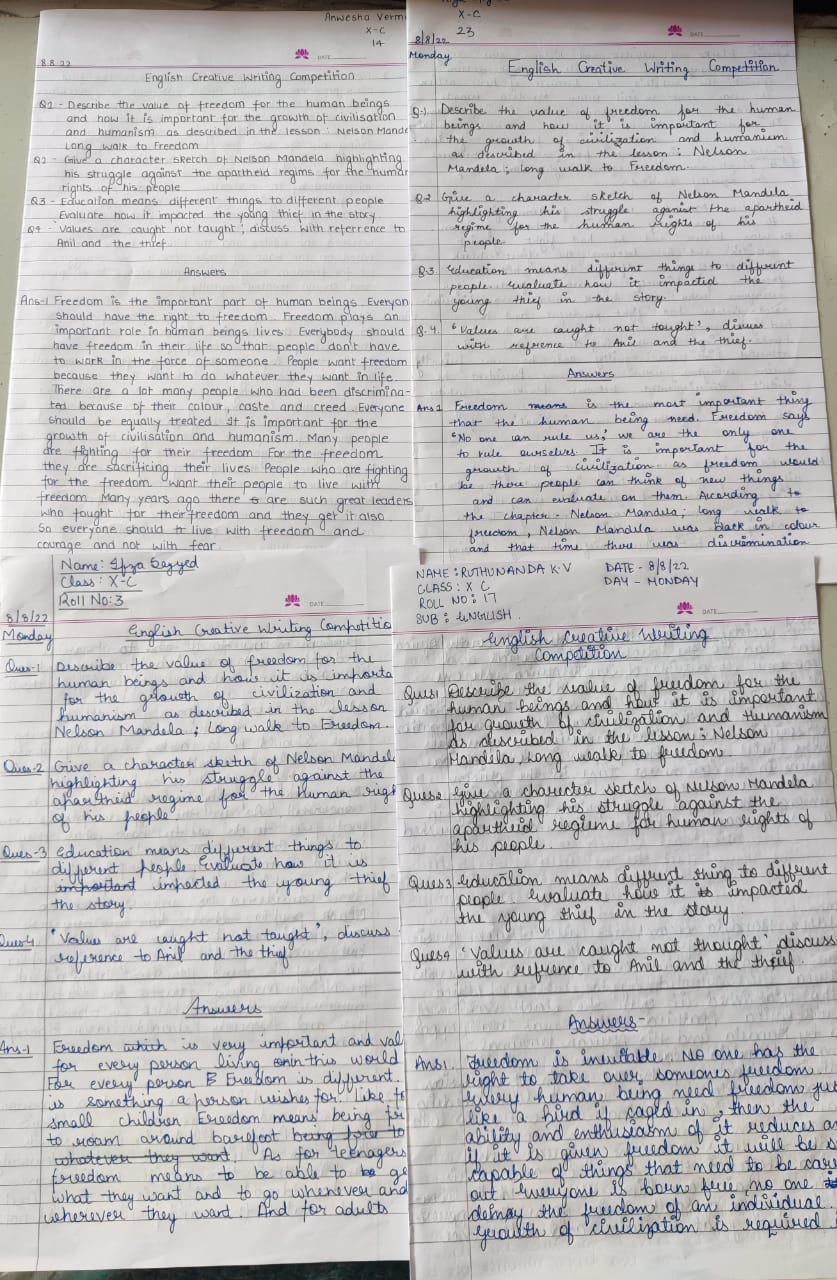 Anwesha Verm
X-C
14
DATE
8.8.22
English Creative Writing Competition
Q1 - Describe the value of freedom for the human beings
and how it is important for the growth of civilisation
and humanism as described in the lesson : Nelson Mande
Long walk to Freedom
Q2 - Give a character sketch of Nelson Mandela highlighting
his struggle against the apartheid regims for the human
rights of his people
Q3 - Education means different things to different people
Evaluate how it impacted the young thief in the story
Q4 - Values are caught not taught ; discuss with referrence to
Anil and the thief
Answers
Ans-1 Freedom is the important part of human beings. Everyon
should have the right to freedom. Freedom plays an
important role in human beings lives. Everybody should
have freedom in their life so that people don't have
to work in the force of someone. People want freedom
because they want to do whatever they want in life.
There are a lot many people who had been discrimina-
ted because of their colour, caste and creed. Everyone
should be equally treated. It is important for the
growth of civilisation and humanism. Many people
are fighting for their freedom. For the freedom
they are sacrificing their lives. People who are fighting
for the freedom want their people to live with
freedom. Many years ago there are such great leaders
who fought for their freedom and they get it also
So everyone should live with freedom and
courage and not with fear.
X-C
23
8/8/22
DATE
Monday
English Creative Writing Competition
Q-1 Describe the value of freedom for the human
beings and how it is important for
the growth of civilization and humanism
as described in the lesson : Nelson
Mandela ; long walk to Freedom.
Q-2 Give a character sketch of Nelson Mandela
highlighting his struggle aganist the apartheid
regime for the human rights of his
people.
Q-3 Education means different things to different
people evaluate how it impacted the
young thief in the story.
Q-4. 'Values are caught not tought', discuss
with reference to Anil and the thief.
Answers
Ans 1 Freedom means is the most important thing
that the human being need. Freedom says
"No one can rule us,' we are the only one
to rule ourselves. It is important for the
growth of civilization as freedom would
be there people can think of new things
and can evaluate on them. According to
the chapter - Nelson Mandela ; long walk to
freedom, Nelson Mandela was black in colour
and that time there was discrimination
Name: Ifza Sayyed
Class: X-C
Roll No: 3
DATE
8/8/22
Monday
English Creative Writing Competitio
Ques-1 Describe the value of freedom for the
human beings and how it is importa
for the growth of civilization and
humanism as described in the lesson
Nelson Mandela ; Long walk to Freedom.
Ques-2 Give a character sketch of Nelson Mandel
highlighting his struggle against the
apartheid regime for the Human righ
of his people
Ques-3 Education means different things to
different people. Evaluate how it is
important impacted the young thief
the story.
Ques4 'Values are caught not taught', discuss
reference to Anil and the thief
Answers
Ans-1 Freedom which is very important and val
for every person living in this world
For every person Freedom is different.
is something a person wishes for. Like f
small children Freedom means being fr
to roam around barefoot being free to
whatever they want. As for teenagers
freedom means to be able to ge
what they want and to go whenever and
wherever they want. And for adults
NAME : RUTHUNANDA K.V DATE - 8/8/22
CLASS : X C DAY - MONDAY
ROLL NO : 17
SUB : ENGLISH.
DATE
English Creative Writing
Competition
Ques1 Describe the value of freedom for the
human beings and how it is important
for growth of civilization and Humanism
as described in the lesson : Nelson
Mandila Long walk to freedom
Ques2 Give a character sketch of Nelson Mandela
highlighting his struggle against the
apartheid regieme for human rights of
his people.
Ques3 Education means diffrent thing to diffrent
people. Evaluate how it is impacted
the young thief in the story.
Ques4 'Values are caught not thought' discuss
with refrence to Anil and the thief.
Answers-
Ans1. Freedom is inevitable. No one has the
right to take over someones freedom
Every human being need freedom jus
like a bird if caged in, then the
ability and enthusiasm of it reduces an
if it is given freedom it will be
capable of things that need to be car
out. Everyone is born free, no one
demay the freedom of an individual.
growth of civilization is required